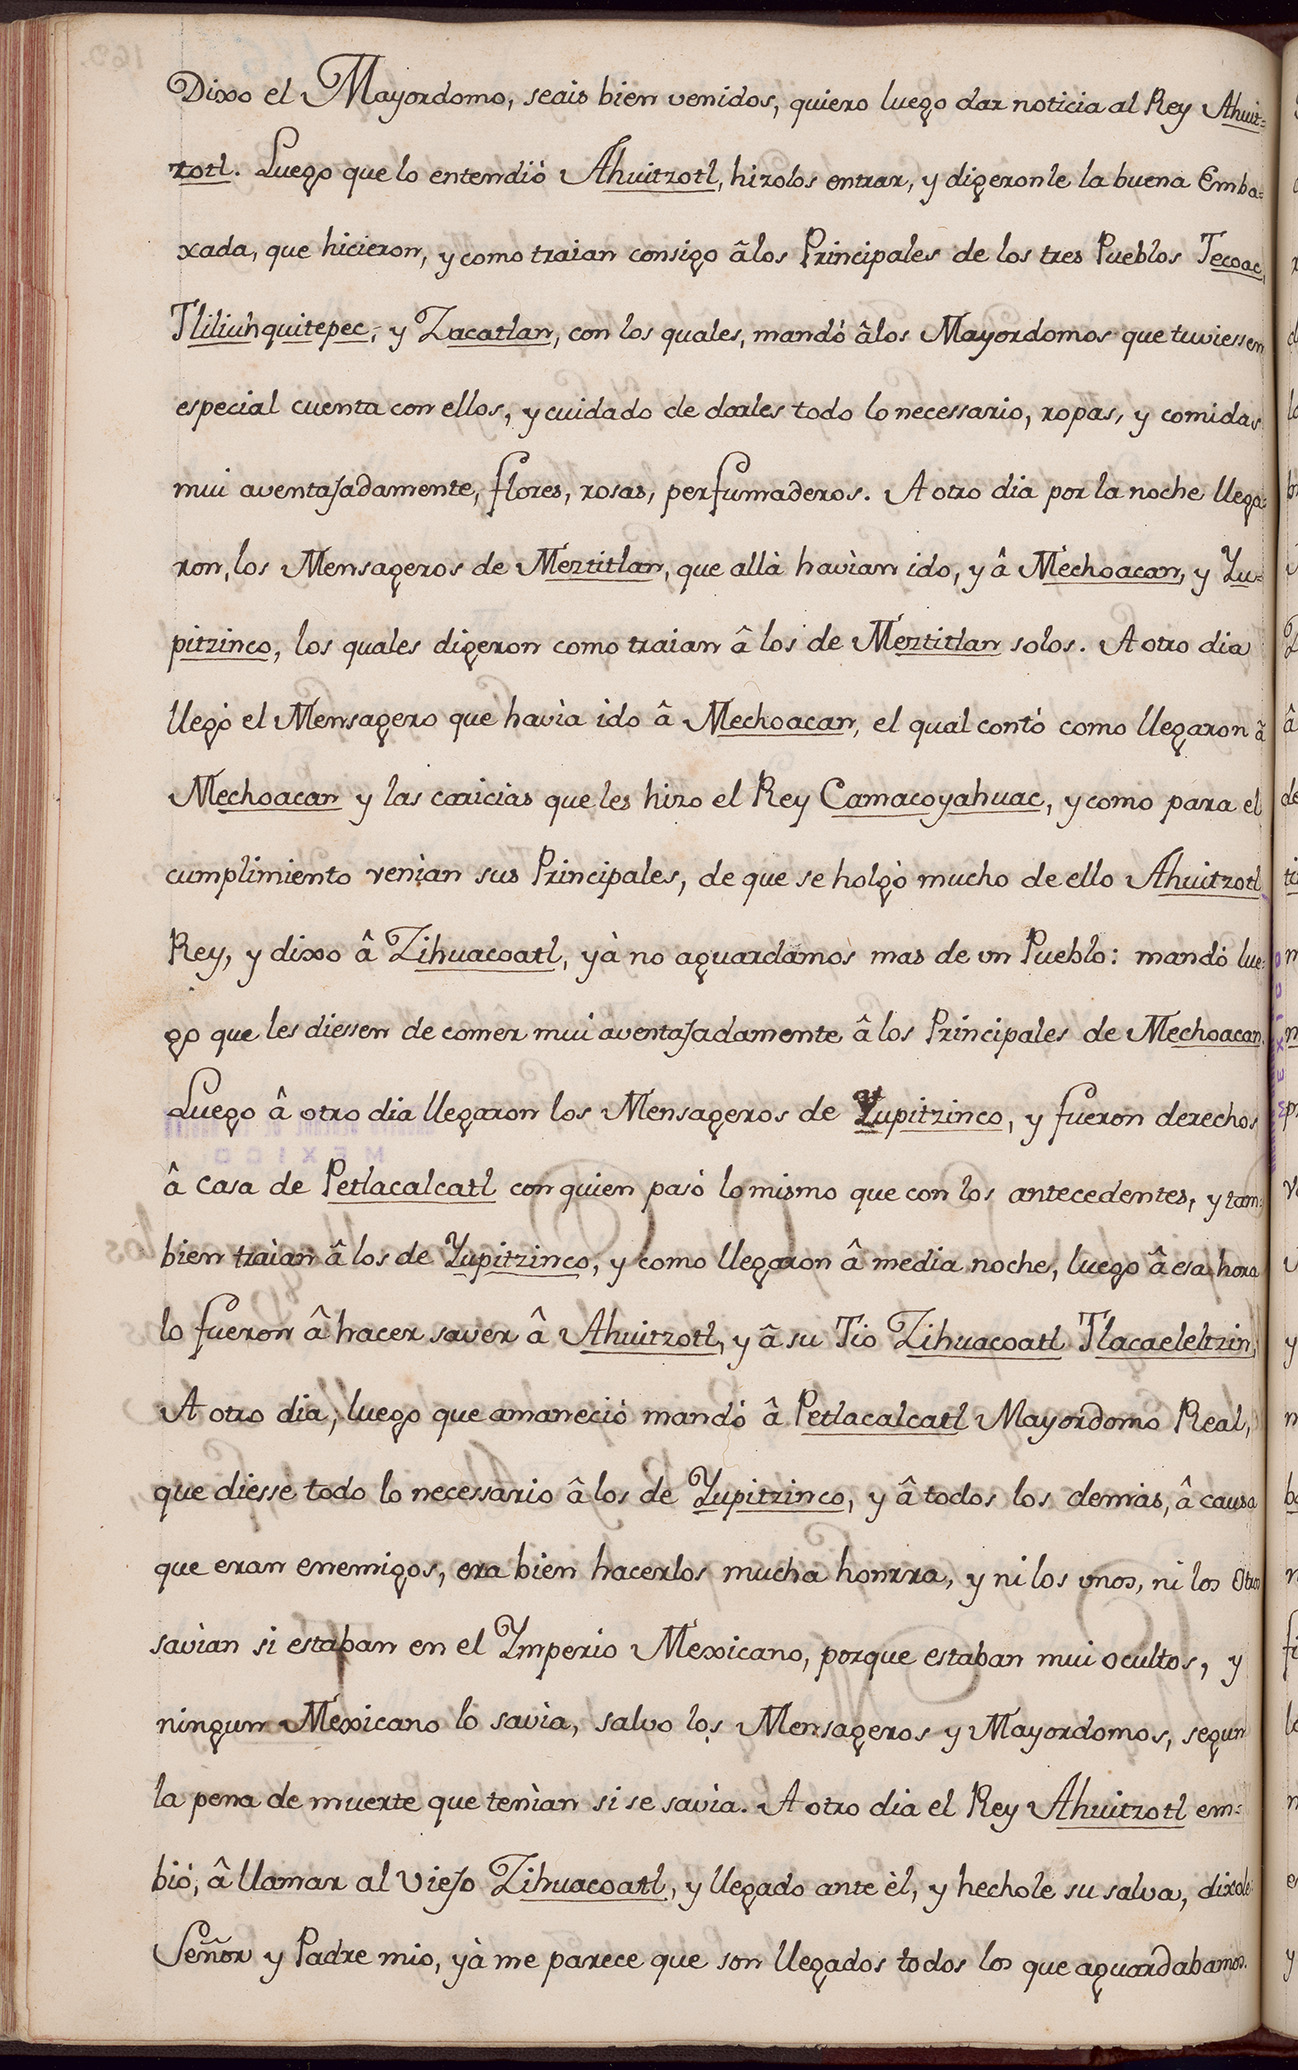 Dixo el Mayordomo, seais bien venidos, quiero luego dar noticia al Rey Ahuit=
zotl. Luego que lo entendiò Ahuitzotl, hizolos entrar, y digeronle la buena Emba=
xada, que hicieron, y como traian consigo â los Principales de los tres Pueblos Tecoac,
Tliliuhquitepec, y Zacatlan, con los quales, mandó âlos Mayordomos que tuviessen
especial cuenta con ellos, y cuidado de darles todo lo necessario, ropas, y comidas
mui aventajadamente, flores, rosas, perfumaderos. A otro dia por la noche llega=
ron, los Mensageros de Meztitlan, que allà havian ido, y â Mechoacan, y Yu=
pitzinco, los quales digeron como traian â los de Meztitlan solos. A otro dia
llegò el Mensagero que havia ido â Mechoacan, el qual contò como llegaron â
Mechoacan y las caricias que les hizo el Rey Camacoyahuac, y como para el
cumplimiento venian sus Principales, de que se holgò mucho de ello Ahuitzotl
Rey, y dixo â Zihuacoatl, yà no aguardamos mas de un Pueblo: mandò lue=
go que les diessen de comer mui aventajadamente â los Principales de Mechoacan.
Luego â otro dia llegaron los Mensageros de Yupitzinco, y fueron derechos
â casa de Petlacalcatl con quien pasò lo mismo que con los antecedentes, y tam=
bien traian â los de Yupitzinco, y como llegaron â media noche, luego â esa hora
lo fueron â hacer saver â Ahuitzotl, y â su Tio Zihuacoatl Tlacaeleltzin,
A otro dia, luego que amaneciò mandó â Petlacalcatl Mayordomo Real,
que diesse todo lo necessario â los de Yupitzinco, y â todos los demas, â causa
que eran enemigos, era bien hacerlos mucha honrra, y ni los unos, ni los otros
savian si estaban en el Ymperio Mexicano, porque estaban mui ocultos, y
ningun Mexicano lo savia, salvo los Mensageros y Mayordomos, segun
la pena de muerte que tenian si se savia. A otro dia el Rey Ahuitzotl em=
bió, â llamar al Viejo Zihuacoatl, y llegado ante èl, y hechole su salva, dixole
Señor y Padre mio, yà me parece que son llegados todos los que aguardabamos.